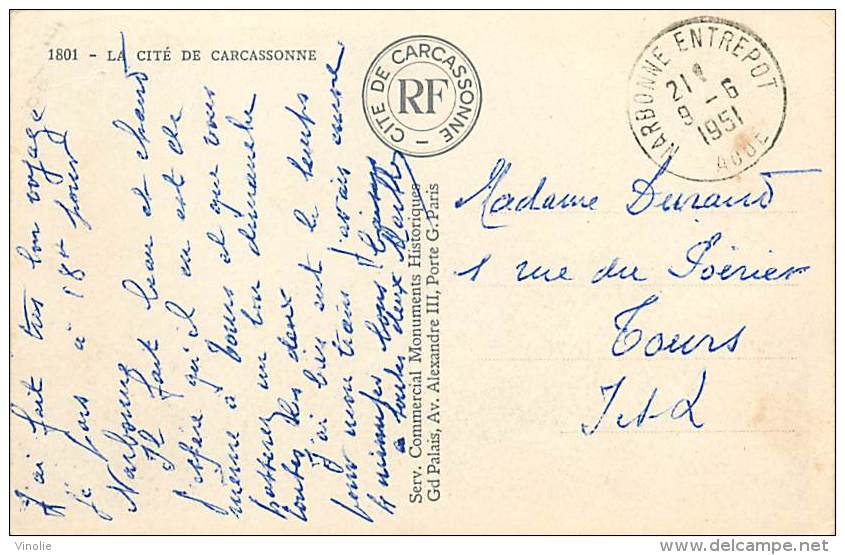 1801 - LA CITÉ DE CARCASSONNE
CITÉ DE CARCASSONNE
RF
NARBONNE ENTREPOT
21H
9-6
1951
AUDE
Madame Durand
1 rue du Poërier
Tours
I & L
J'ai fait très bon voyage
je pars à 18h pour
Narbonne
Il fait beau et chaud
j'espère qu'il en est de
même à Tours et que vous
passerez un bon dimanche
toutes les deux
J'ai bien eut le temps
pour mon train j'avais encore
minutes bons baisers
à toutes deux
Serv. Commercial Monuments Historiques
Gd Palais, Av. Alexandre III, Porte G. Paris
Vinolie
delcampe.net